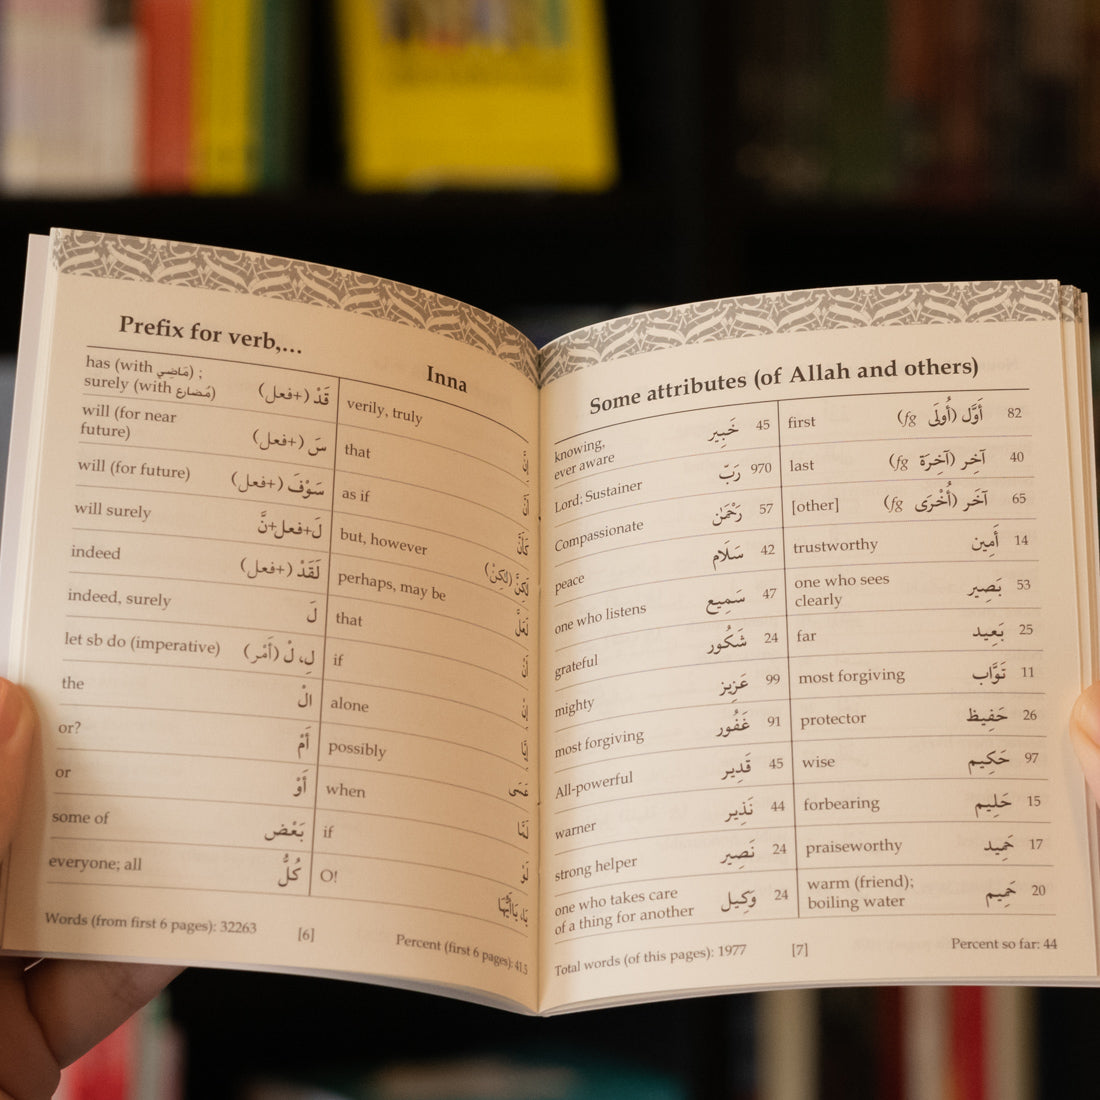 Prefix for verb,...
has (with مَاضِي) ;
surely (with مُضارع) قَدْ (+فعل)
will (for near
future) سَ (+فعل)
will (for future) سَوْفَ (+فعل)
will surely لَ+فعل+نَّ
indeed لَقَدْ (+فعل)
indeed, surely لَ
let sb do (imperative) لِ، لْ (أَمْر)
the الْ
or? أَمْ
or أَوْ
some of بَعْض
everyone; all كُلُّ
Inna
verily, truly
that
as if
but, however
perhaps, may be
that
if
alone
possibly
when
if
O!
Words (from first 6 pages): 32263 [6] Percent (first 6 pages): 41.5
Some attributes (of Allah and others)
knowing,
ever aware خَبِير 45
Lord; Sustainer رَبّ 970
Compassionate رَحْمٰن 57
peace سَلَام 42
one who listens سَمِيع 47
grateful شَكُور 24
mighty عَزِيز 99
most forgiving غَفُور 91
All-powerful قَدِير 45
warner نَذِير 44
strong helper نَصِير 24
one who takes care
of a thing for another وَكِيل 24
first أَوَّل (أُولَى fg) 82
last آخِر (آخِرَة fg) 40
[other] آخَر (أُخْرَى fg) 65
trustworthy أَمِين 14
one who sees
clearly بَصِير 53
far بَعِيد 25
most forgiving تَوَّاب 11
protector حَفِيظ 26
wise حَكِيم 97
forbearing حَلِيم 15
praiseworthy حَمِيد 17
warm (friend);
boiling water حَمِيم 20
Total words (of this pages): 1977 [7] Percent so far: 44